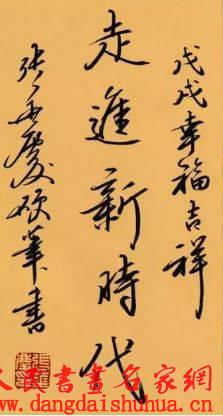 戊戌幸福吉祥
走進新時代
张岳慶硬筆書
人民書畫名家網
www.dangdaishuhua.cn